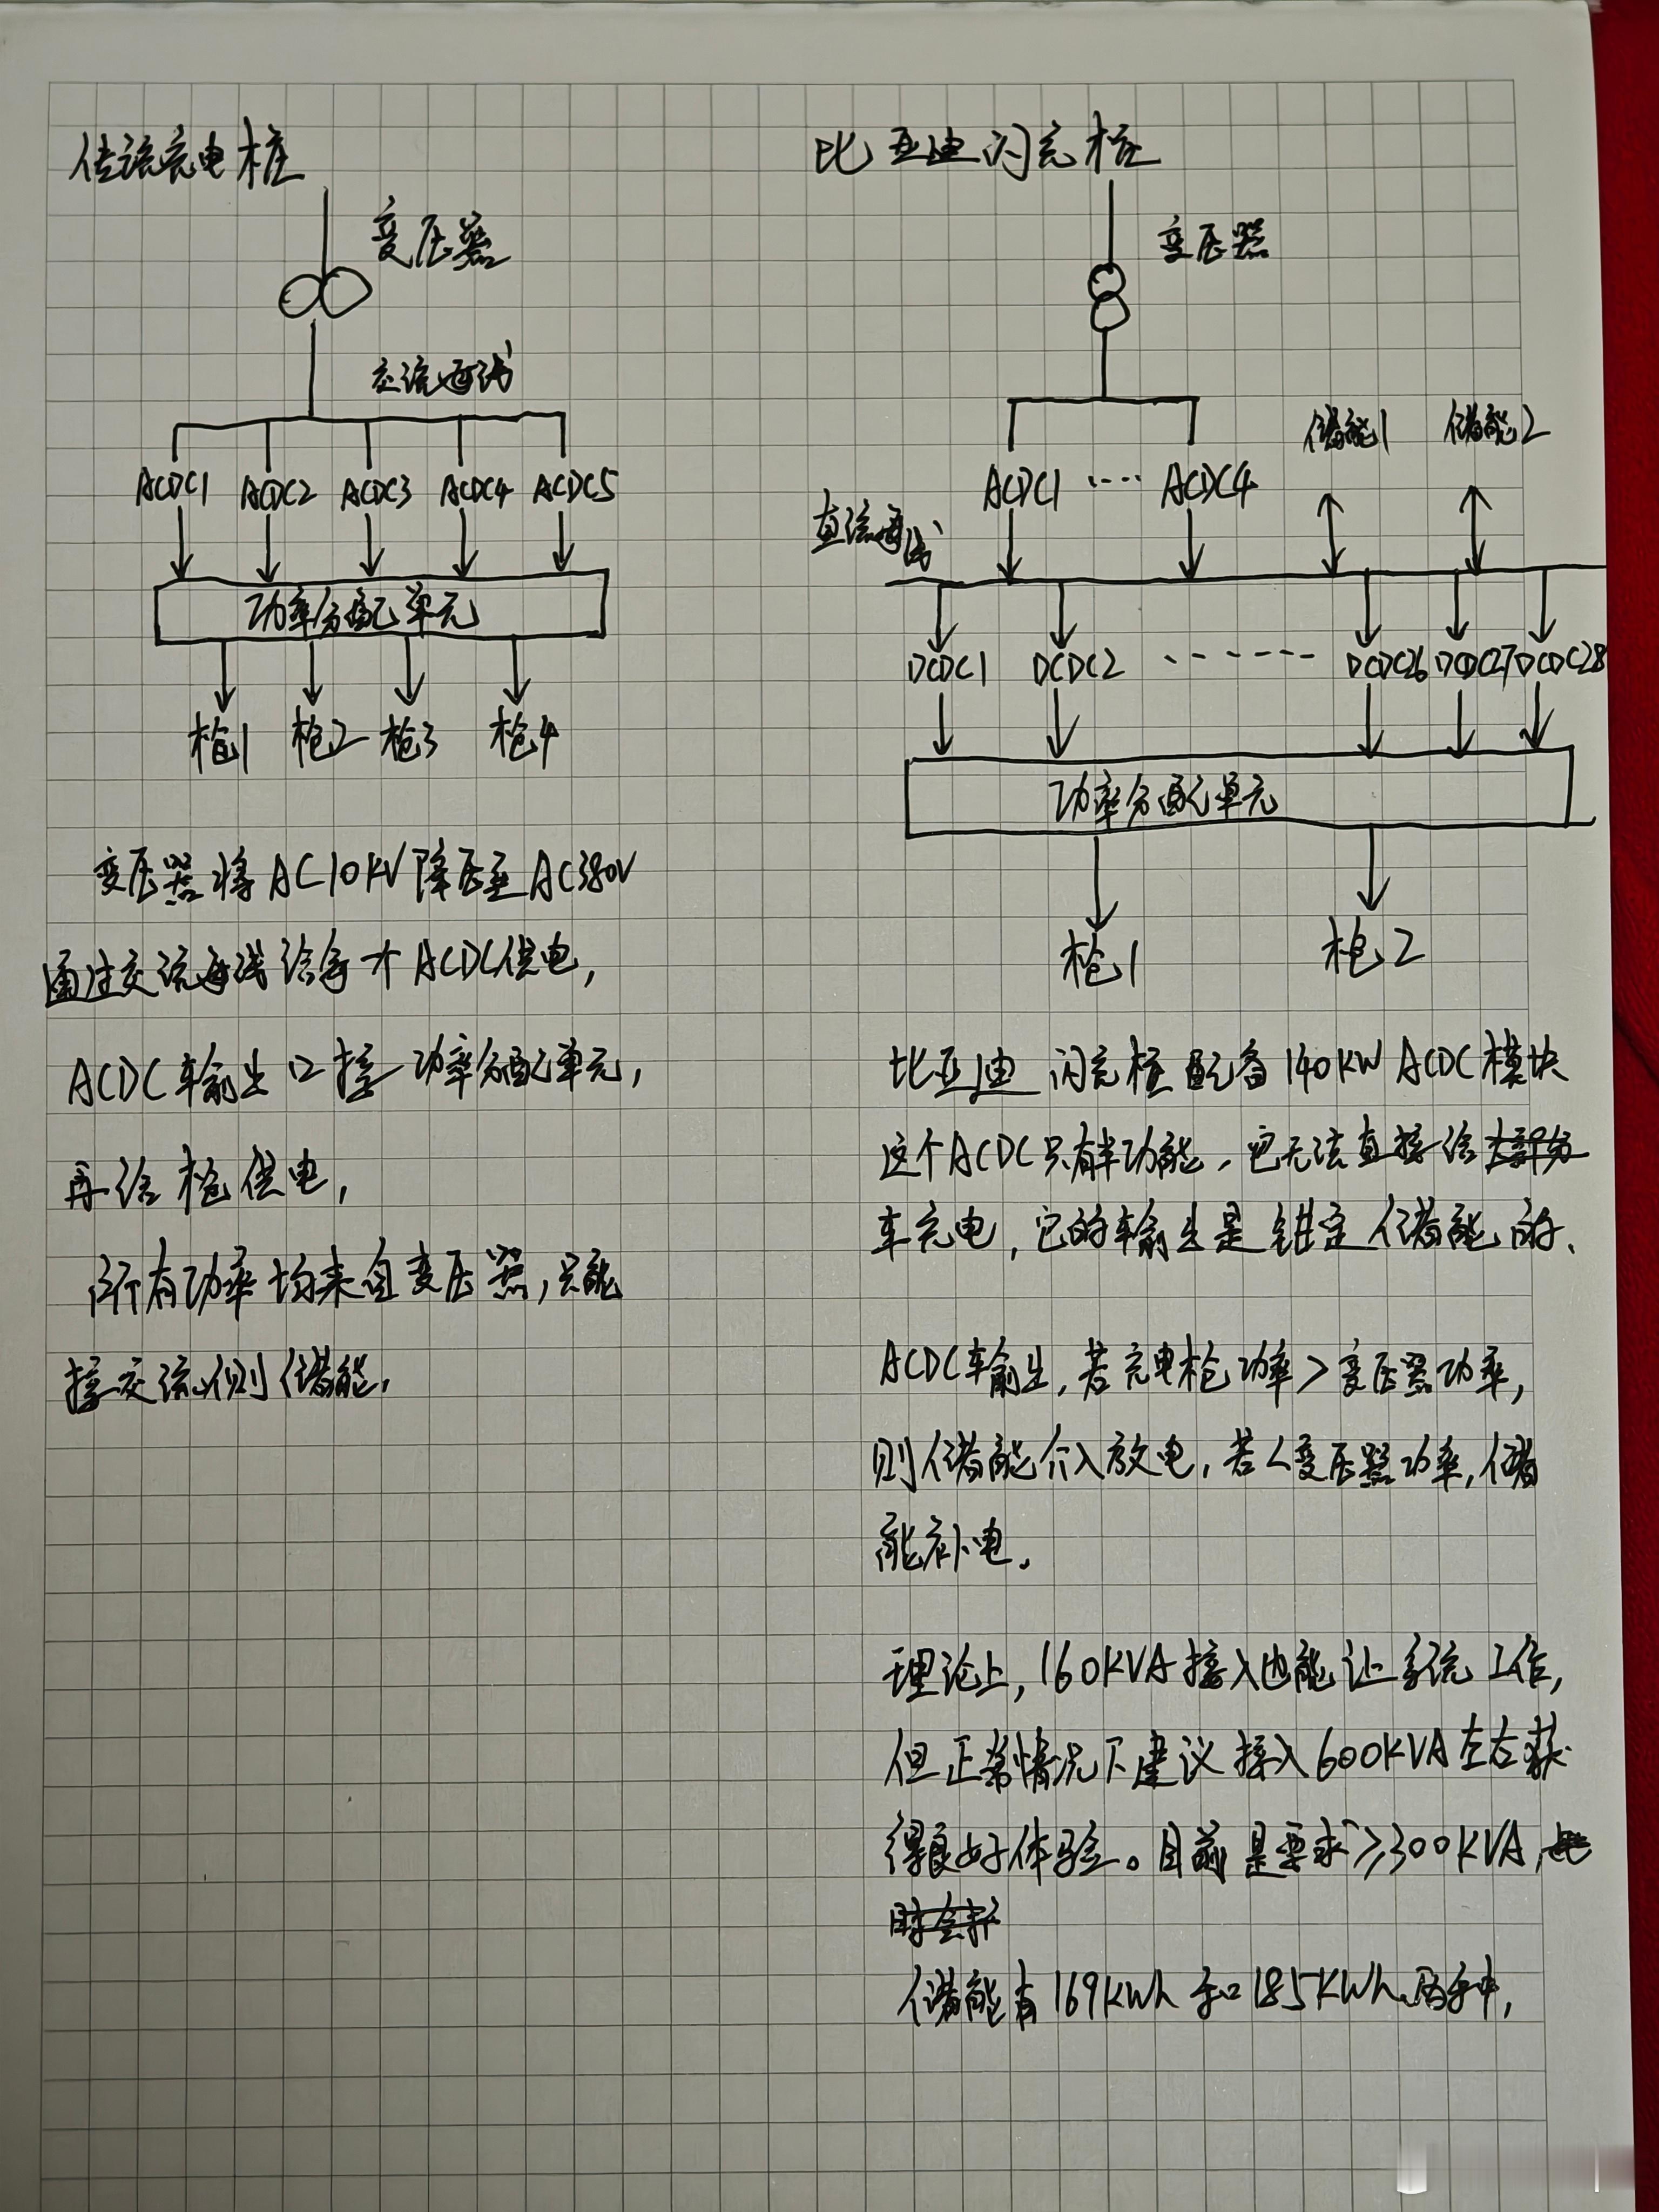 传统充电桩
变压器
交流母线
ACDC1 ACDC2 ACDC3 ACDC4 ACDC5
功率分配单元
枪1 枪2 枪3 枪4
变压器将AC10KV降压至AC380V
通过交流母线给每个ACDC供电,
ACDC输出口接功率分配单元,
再给枪供电,
所有功率均来自变压器,只能
接交流侧储能.
比亚迪闪充桩
变压器
储能1 储能2
ACDC1 ···· ACDC4
直流母线
DCDC1 DCDC2 ------- DCDC26 DCDC27 DCDC28
功率分配单元
枪1 枪2
比亚迪闪充桩配备140KW ACDC模块
这个ACDC只有半功能,它无法直接给
车充电,它的输出是钳定储能的、
ACDC输出,若充电枪功率>变压器功率,
则储能介入放电,若<变压器功率,储
能补电。
理论上,160KVA接入也能让系统工作,
但正常情况下建议接入600KVA左右获
得良好体验。目前是要求≥300KVA,
储能有169KWh和185KWh两种,